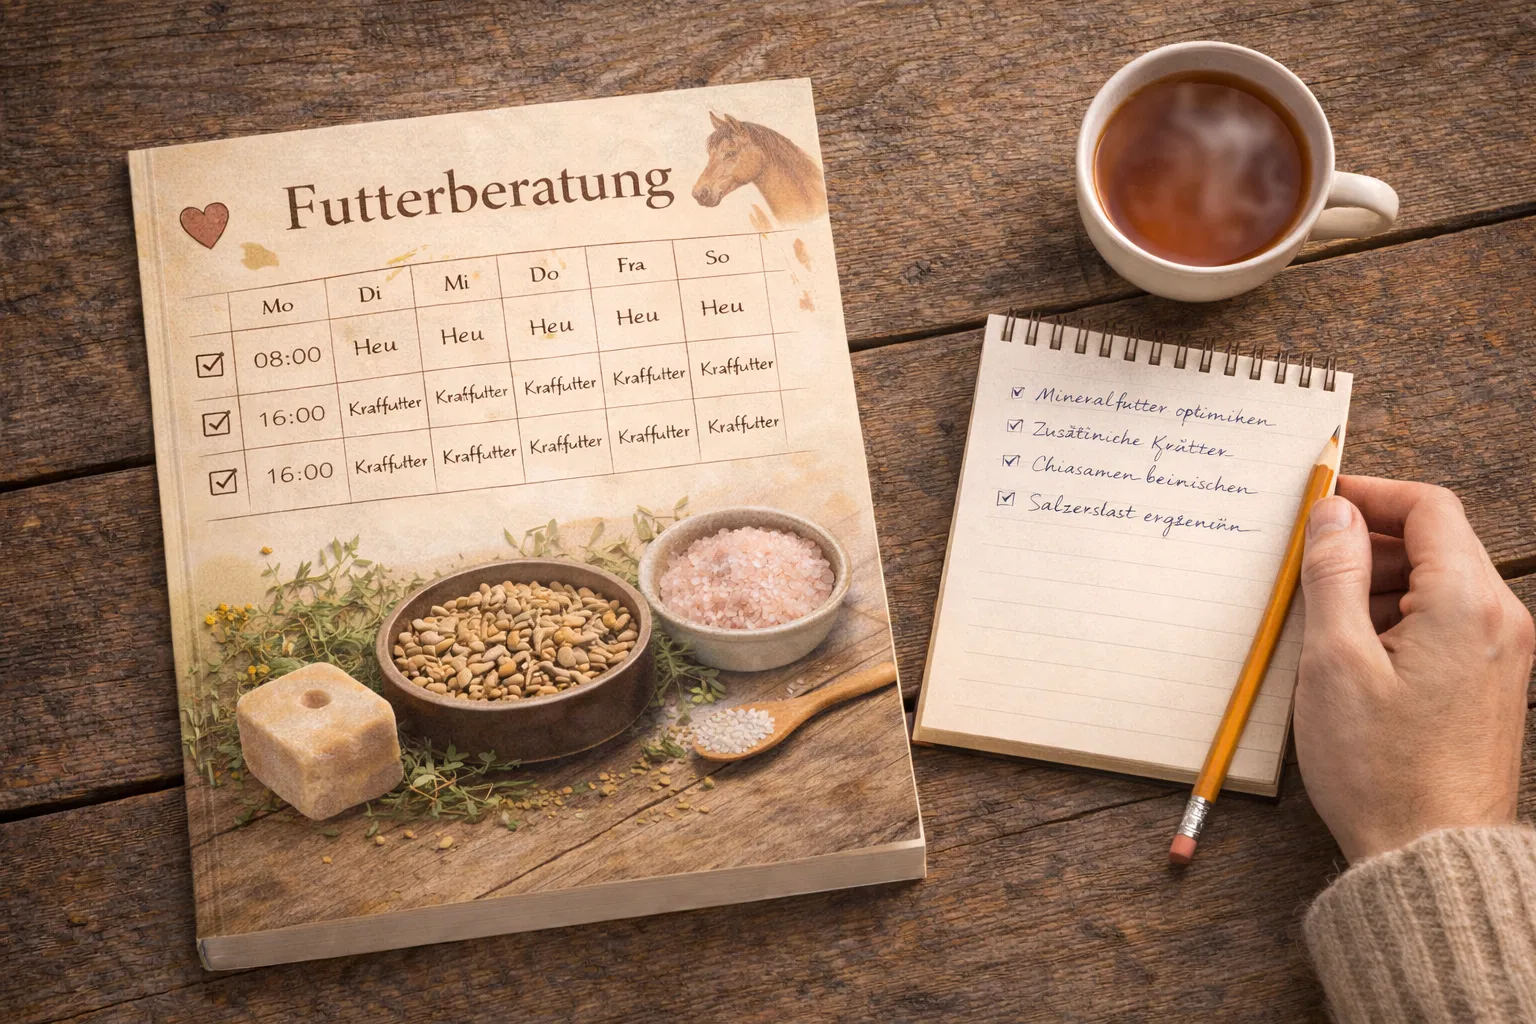 Futterberatung
Mo Di Mi Do Fra So
08:00 Heu Heu Heu Heu Heu
16:00 Kraffutter Kraffutter Kraffutter Kraffutter Kraffutter
16:00 Kraffutter Kraffutter Kraffutter Kraffutter Kraffutter
Mineralfutter optimihen
Zusätiniche Krütter
Chiasamen beimischen
Salzerslast